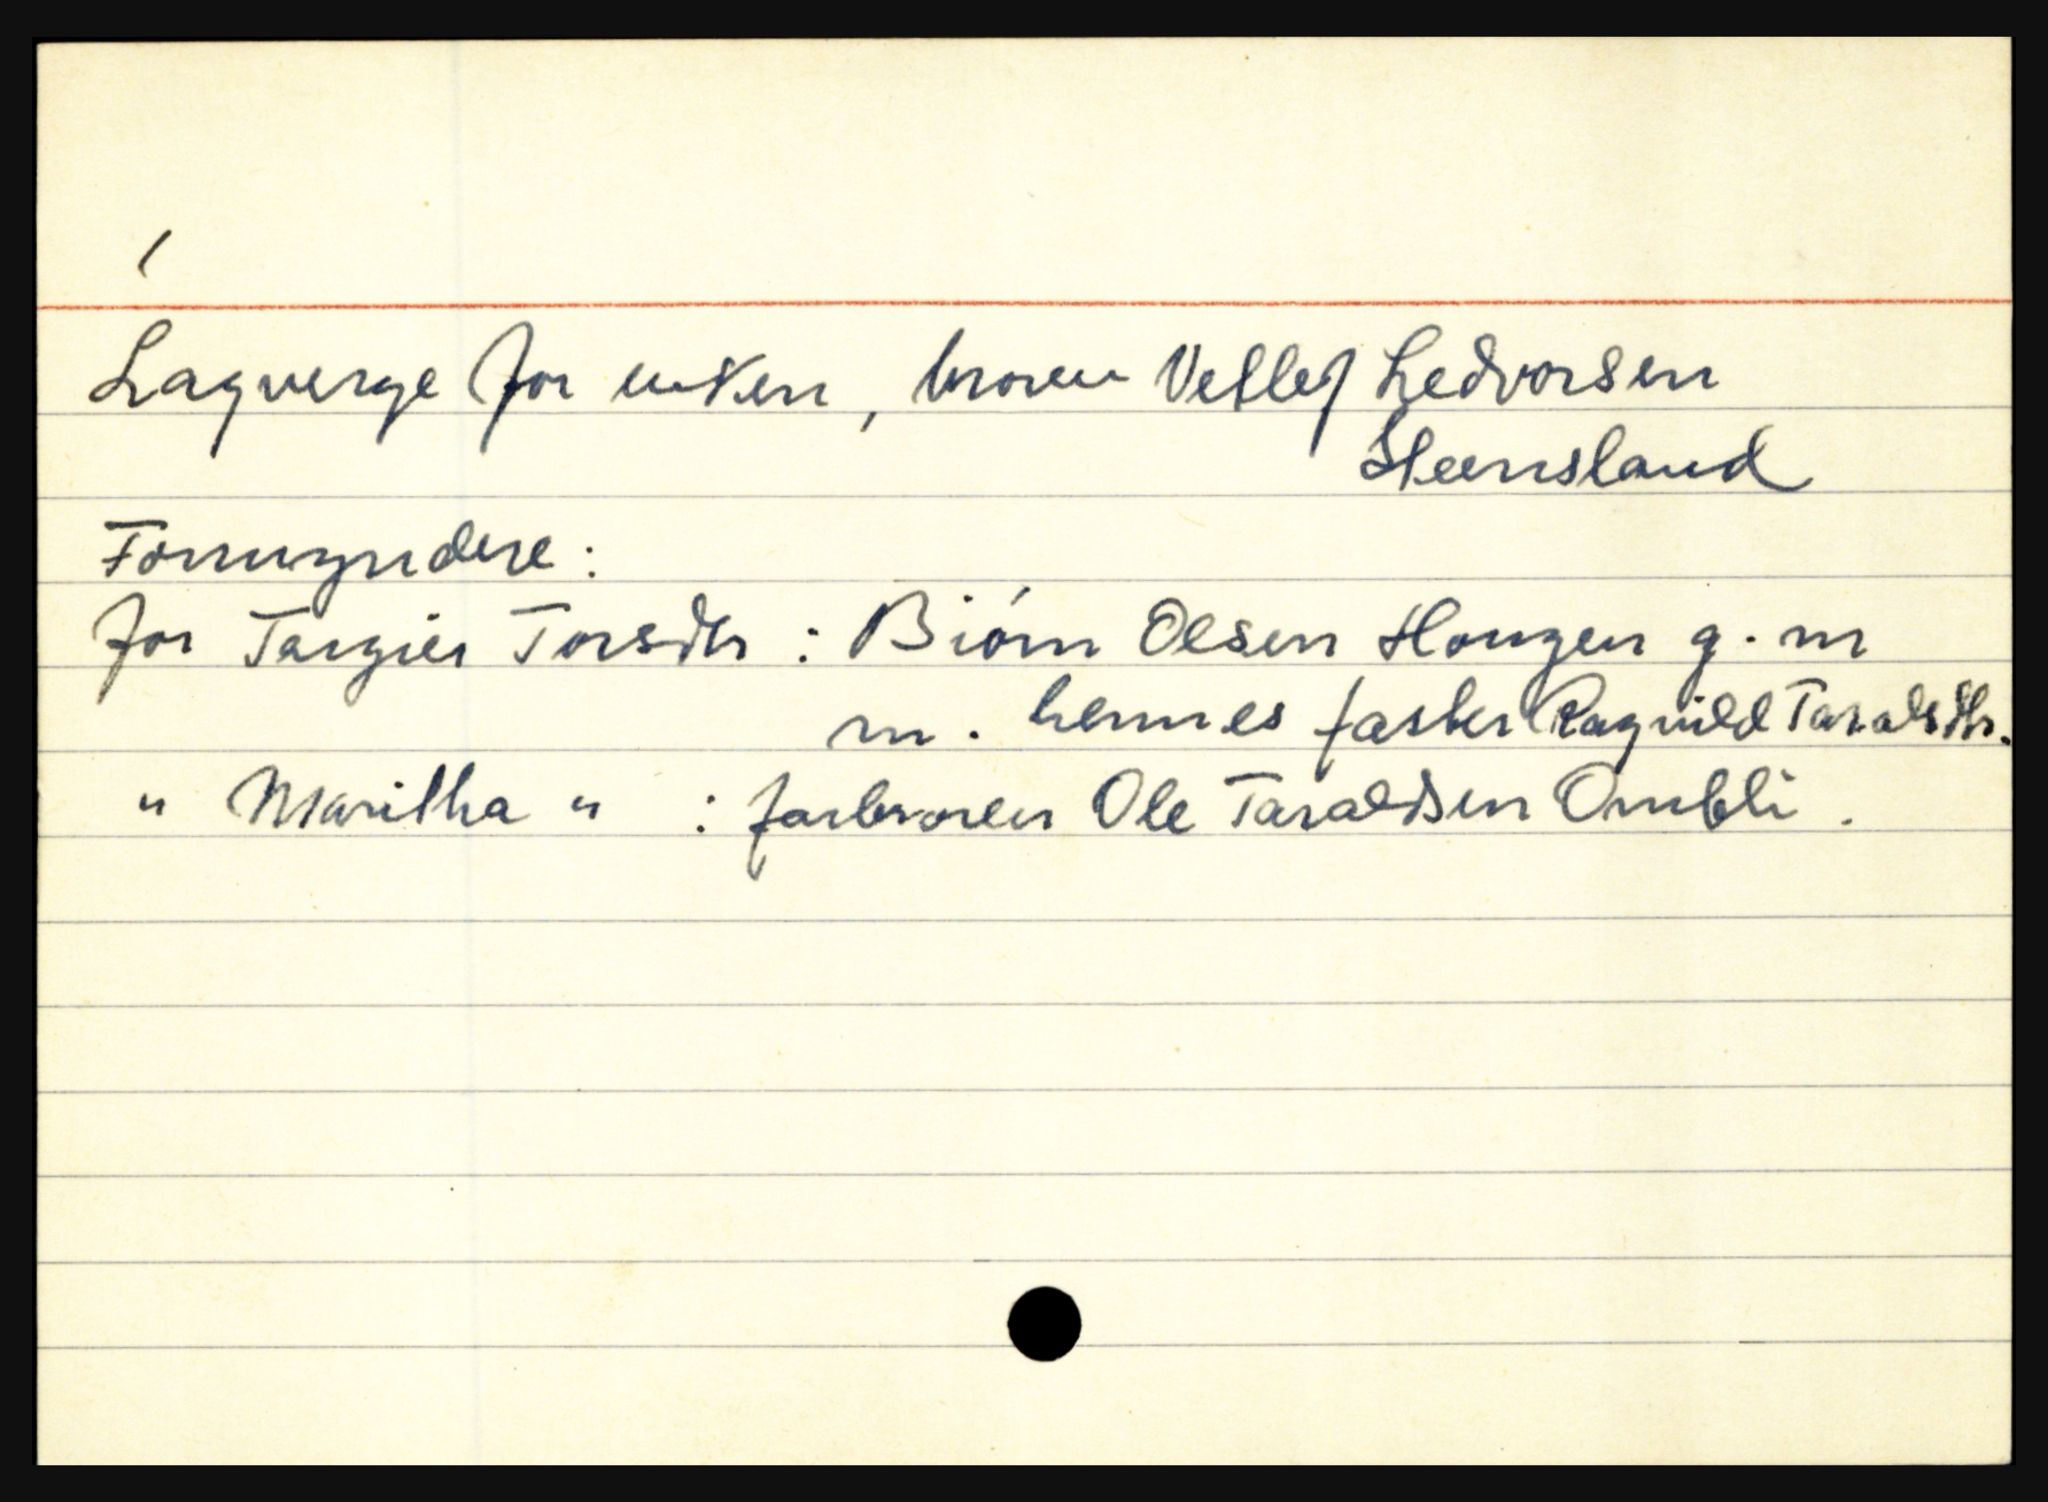 /
Lagverge for enken, broren Vetlef Ledvorsen
Steensland
Formyndere:
for Targier Torsdtr : Biórn Olsen Hougen g. m
m. hennes faster Ragnild Taralsdtr.
" Maritha " : farbroren Ole Taraldsen Ombli.